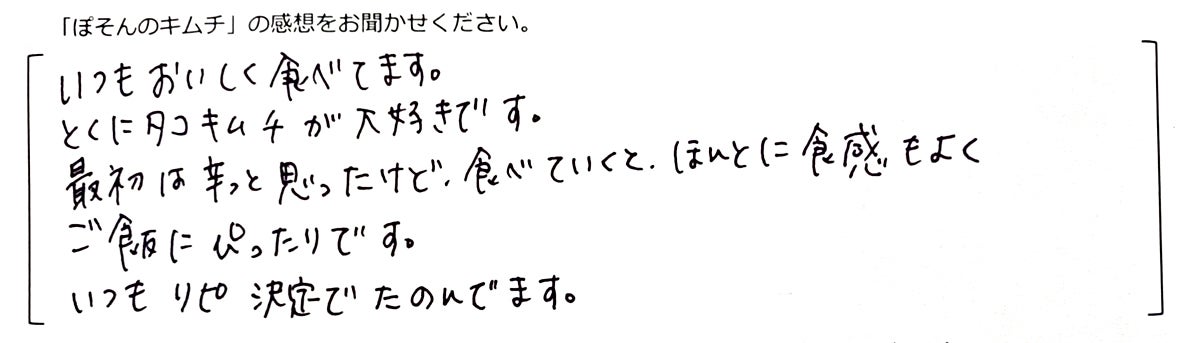 「ぽそんのキムチ」の感想をお聞かせください。
いつもおいしく食べてます。
とくにタコキムチが大好きです。
最初は辛っと思ったけど、食べていくと、ほんとに食感もよく
ご飯にぴったりです。
いつもリピ決定でたのんでます。